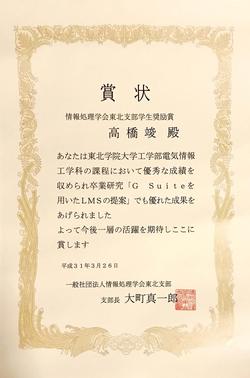 賞状
情報処理学会東北支部学生奨励賞
高橋竣 殿
あなたは東北学院大学工学部電気情報
工学科の課程において優秀な成績を
収められ卒業研究「G Suiteを
用いたLMSの提案」でも優れた成果を
あげられました
よって今後一層の活躍を期待しここに
賞します
平成31年3月26日
一般社団法人情報処理学会東北支部
支部長 大町真一郎